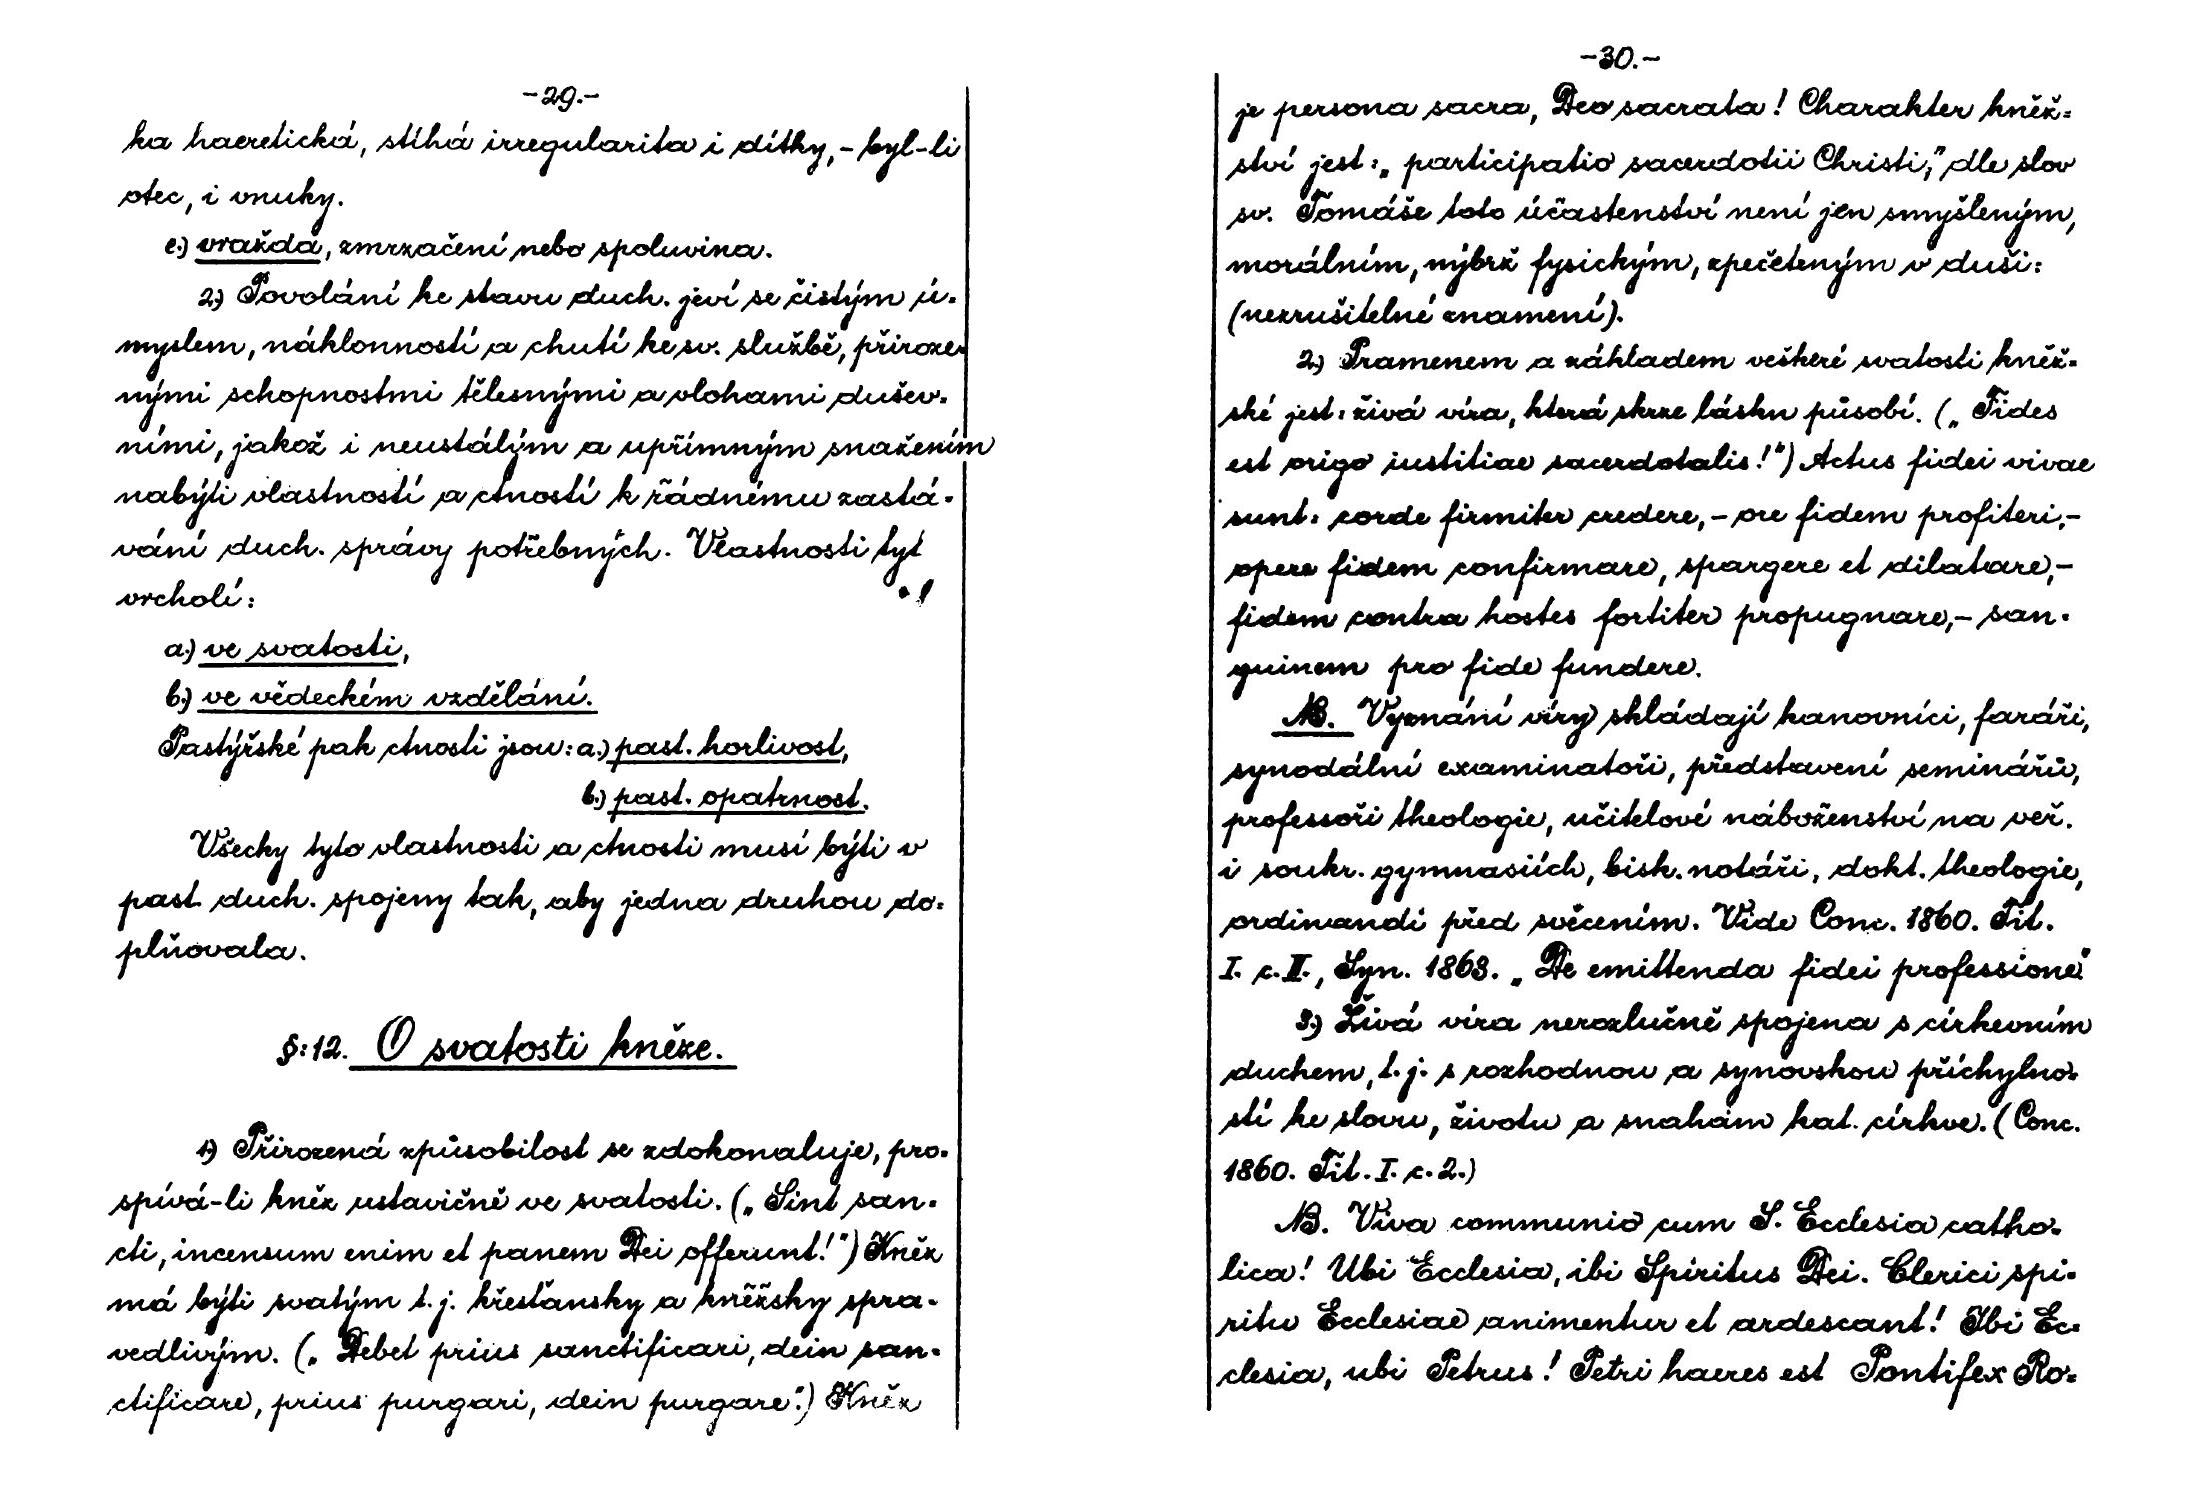 -29.-
ka haeretická, stíhá irregularita i dítky, - byl-li
otec, i vnuky.
e.) vražda, zmrzačení nebo spoluvina.
2.) Povolání ke stavu duch. jeví se čistým ú-
myslem, náklonností a chutí ke sv. službě, přiroze-
nými schopnostmi tělesnými a vlohami dušev-
ními, jakož i neustálým a upřímným snažením
nabýti vlastností a ctností k řádnému zastá-
vání duch. správy potřebných. Vlastnosti tyt
vrcholí:
a.) ve svatosti,
b.) ve vědeckém vzdělání.
Pastýřské pak ctnosti jsou: a.) past. horlivost,
b.) past. opatrnost.
Všecky tyto vlastnosti a ctnosti musí býti v
past. duch. spojeny tak, aby jedna druhou do-
plňovala.
§: 12. O svatosti kněze.
1.) Přirozená způsobilost se zdokonaluje, pro-
spívá-li kněz ustavičně ve svatosti. („Sint san-
cti, incensum enim et panem Dei offerunt!") Kněz
má býti svatým t. j. křesťansky a kněžsky spra-
vedlivým. („Debet prius sanctificari, dein san-
ctificare, prius purgari, dein purgare.") Kněz
-30.-
je persona sacra, Deo sacrata! Charakter kněž-
ství jest: „participatio sacerdotii Christi," dle slov
sv. Tomáše toto účastenství není jen smyšleným,
morálním, nýbrž fysickým, zpečeteným v duši:
(nezrušitelné znamení).
2.) Pramenem a základem veškeré svatosti kněž-
ské jest: živá víra, která skrze lásku působí. („Fides
est origo iustitiae sacerdotalis!") Actus fidei vivae
sunt: corde firmiter credere, - ore fidem profiteri, -
opere fidem confirmare, spargere et dilatare, -
fidem contra hostes fortiter propugnare, - san-
guinem pro fide fundere.
NB. Vyznání víry skládají kanovníci, faráři,
synodální examinatoři, představení seminářů,
professoři theologie, učitelové náboženství na veř.
i soukr. gymnasiích, bisk. notáři, dokt. theologie,
ordinandi před svěcením. Vide Conc. 1860. Tit.
I. c. II., Syn. 1863. „De emittenda fidei professione."
3.) Živá víra nerozlučně spojena s církevním
duchem, t. j. s rozhodnou a synovskou příchylno-
stí ke slovu, životu a snahám kat. církve. (Conc.
1860. Tit. I. c. 2.)
NB. Viva communio cum S. Ecclesia catho-
lica! Ubi Ecclesia, ibi Spiritus Dei. Clerici spi-
ritu Ecclesiae animentur et ardescant! Ibi Ec-
clesia, ubi Petrus! Petri haeres est Pontifex Ro-